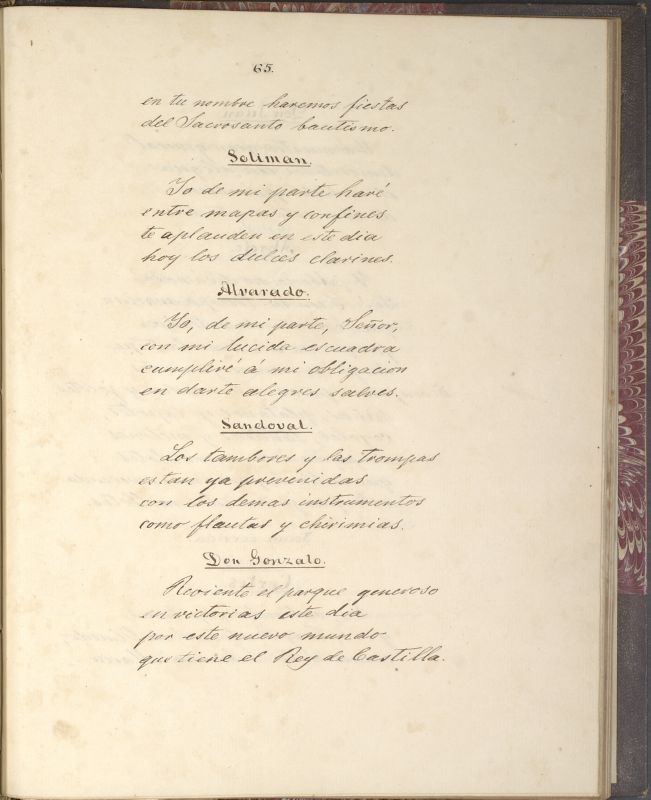 65.
en tu nombre haremos fiestas
del Sacrosanto bautismo.
Soliman.
Yo de mi parte haré
entre mapas y confines
te aplauden en este dia
hoy los dulces clarines.
Alvarado.
Yo, de mi parte, Señor,
con mi lucida escuadra
cumpliré á mi obligacion
en darte alegres salves.
Sandoval.
Los tambores y las trompas
estan ya prevenidas
con los demas instrumentos
como flautas y chirimias.
Don Gonzalo.
Reviente el parque generoso
en victorias este dia
por este nuevo mundo
que tiene el Rey de Castilla.